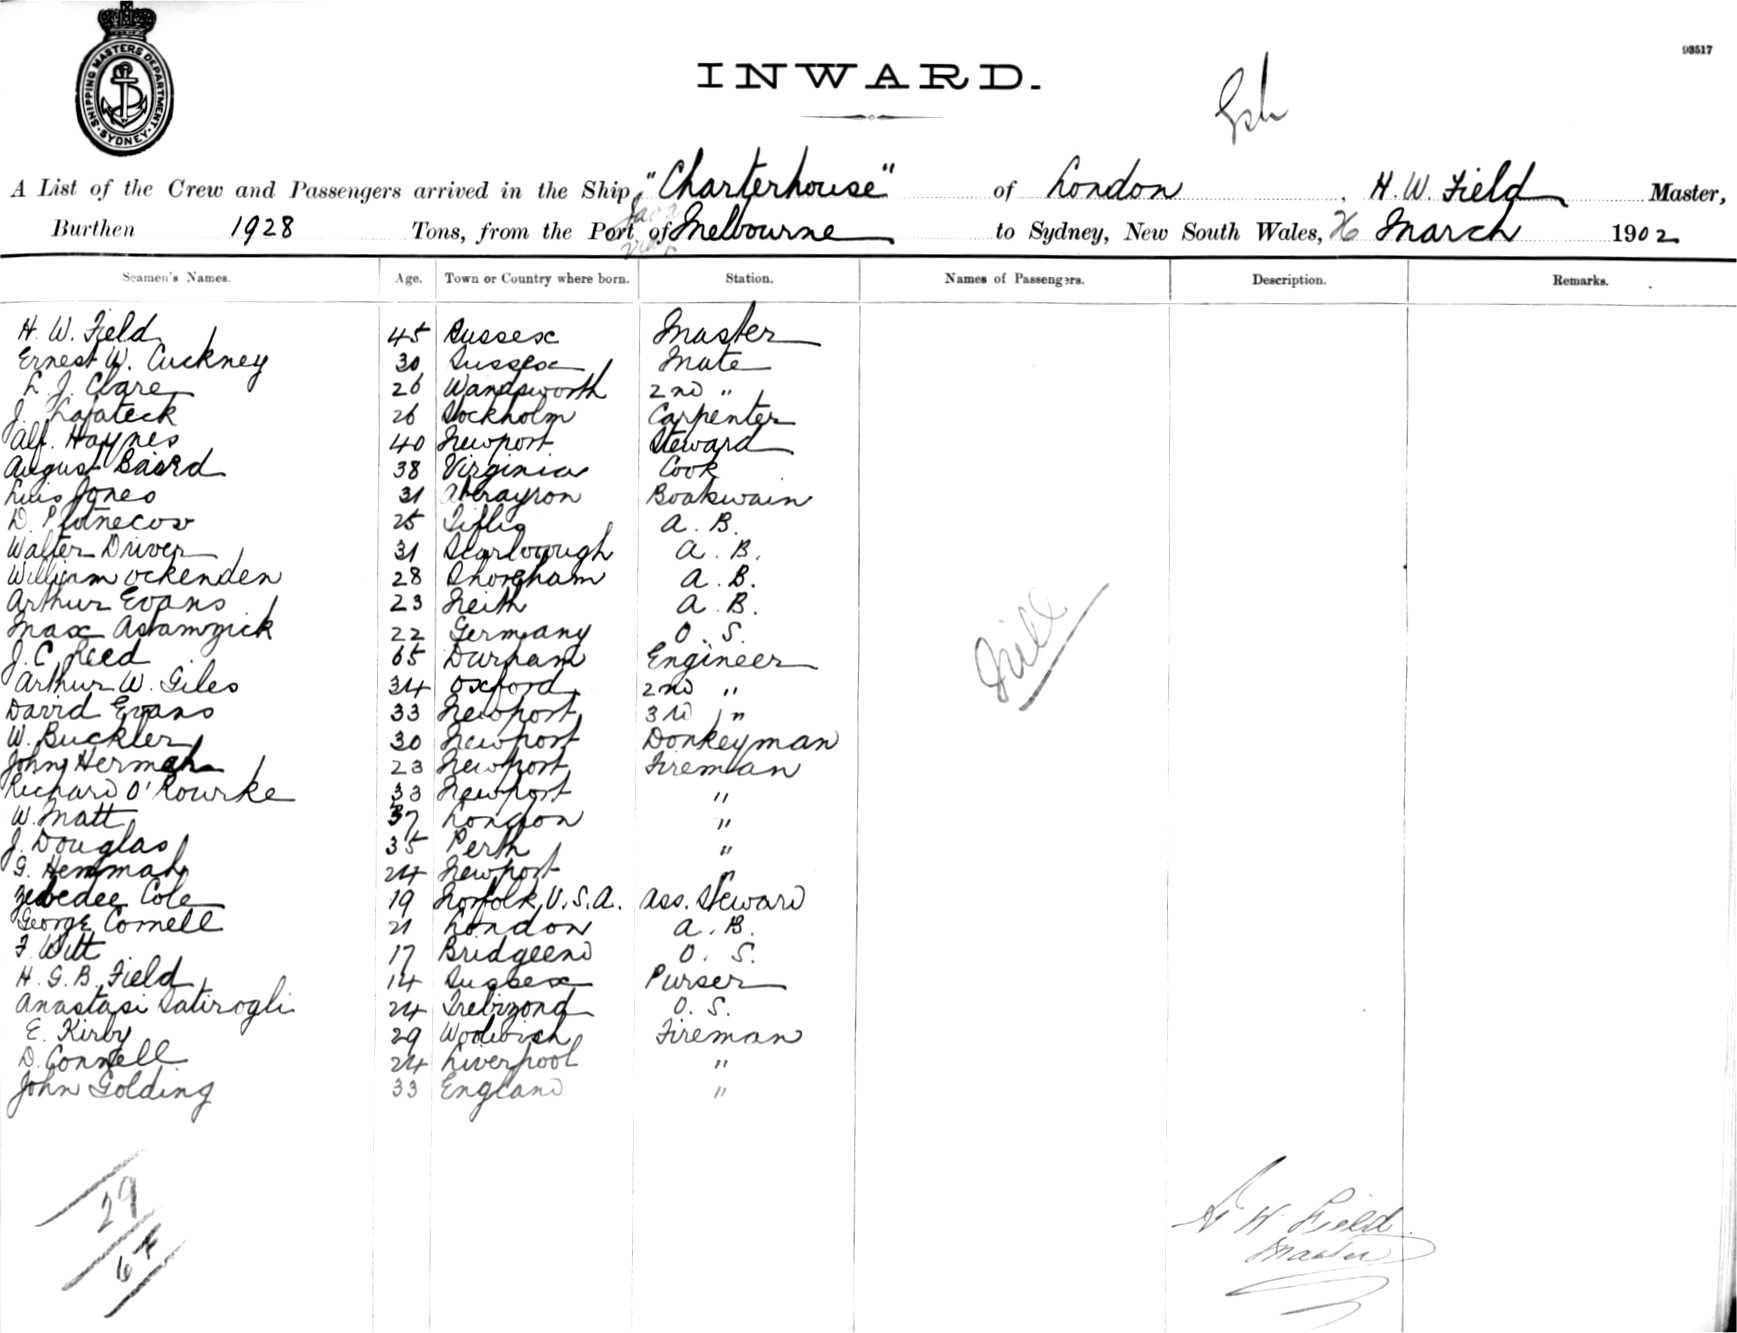 SHIPPING MASTERS DEPARTMENT. SYDNEY.
93517
INWARD.
A List of the Crew and Passengers arrived in the Ship, "Charterhouse" of London, H. W. Field Master,
Burthen 1928 Tons, from the Port of Melbourne to Sydney, New South Wales, 26 March 1902
Seamen's Names. Age. Town or Country where born. Station. Names of Passengers. Description. Remarks.
H. W. Field 45 Sussex Master
Ernest W. Cuckney 30 Sussex Mate
L. J. Clare 26 Wandsworth 2nd "
J. 26 Stockholm Carpenter
Alf. Haynes 40 Newport Steward
August Baird 38 Virginia Cook
Luis Jones 31 Aberayron Boatswain
D. 25 Tiflis A. B.
Walter Driver 31 Scarborough A. B.
William Ockenden 28 Shoreham A. B.
Arthur Evans 23 Leith A. B.
Max 22 Germany O. S.
J. C. Reed 65 Durham Engineer
Arthur W. Giles 34 Oxford 2nd "
David Evans 33 Newport 3rd "
W. Buckler 30 Newport Donkeyman
John Herman 23 Newport Fireman
Richard O'Rourke 33 Newport "
W. Matt 37 London "
J. Douglas 35 Perth "
G. Hemmah 24 Newport "
Zebedee Cole 19 Norfolk, U.S.A. Ass. Steward
George Cornell 21 London A. B.
F. Witt 17 Bridgeend O. S.
H. G. B. Field 14 Sussex Purser
Anastasi Satirogli 24 Trebizond O. S.
E. Kirby 29 Woolwich Fireman
D. Connell 24 Liverpool "
John Golding 33 England "
Nill
29
64
H W Field
Master